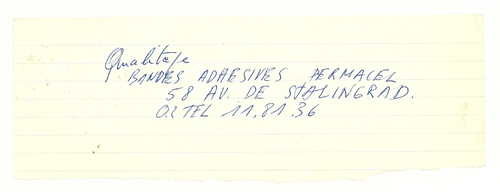 Qualitape
BANDES ADHESIVES PERMACEL
58 AV. DE STALINGRAD.
TEL 11.81.36